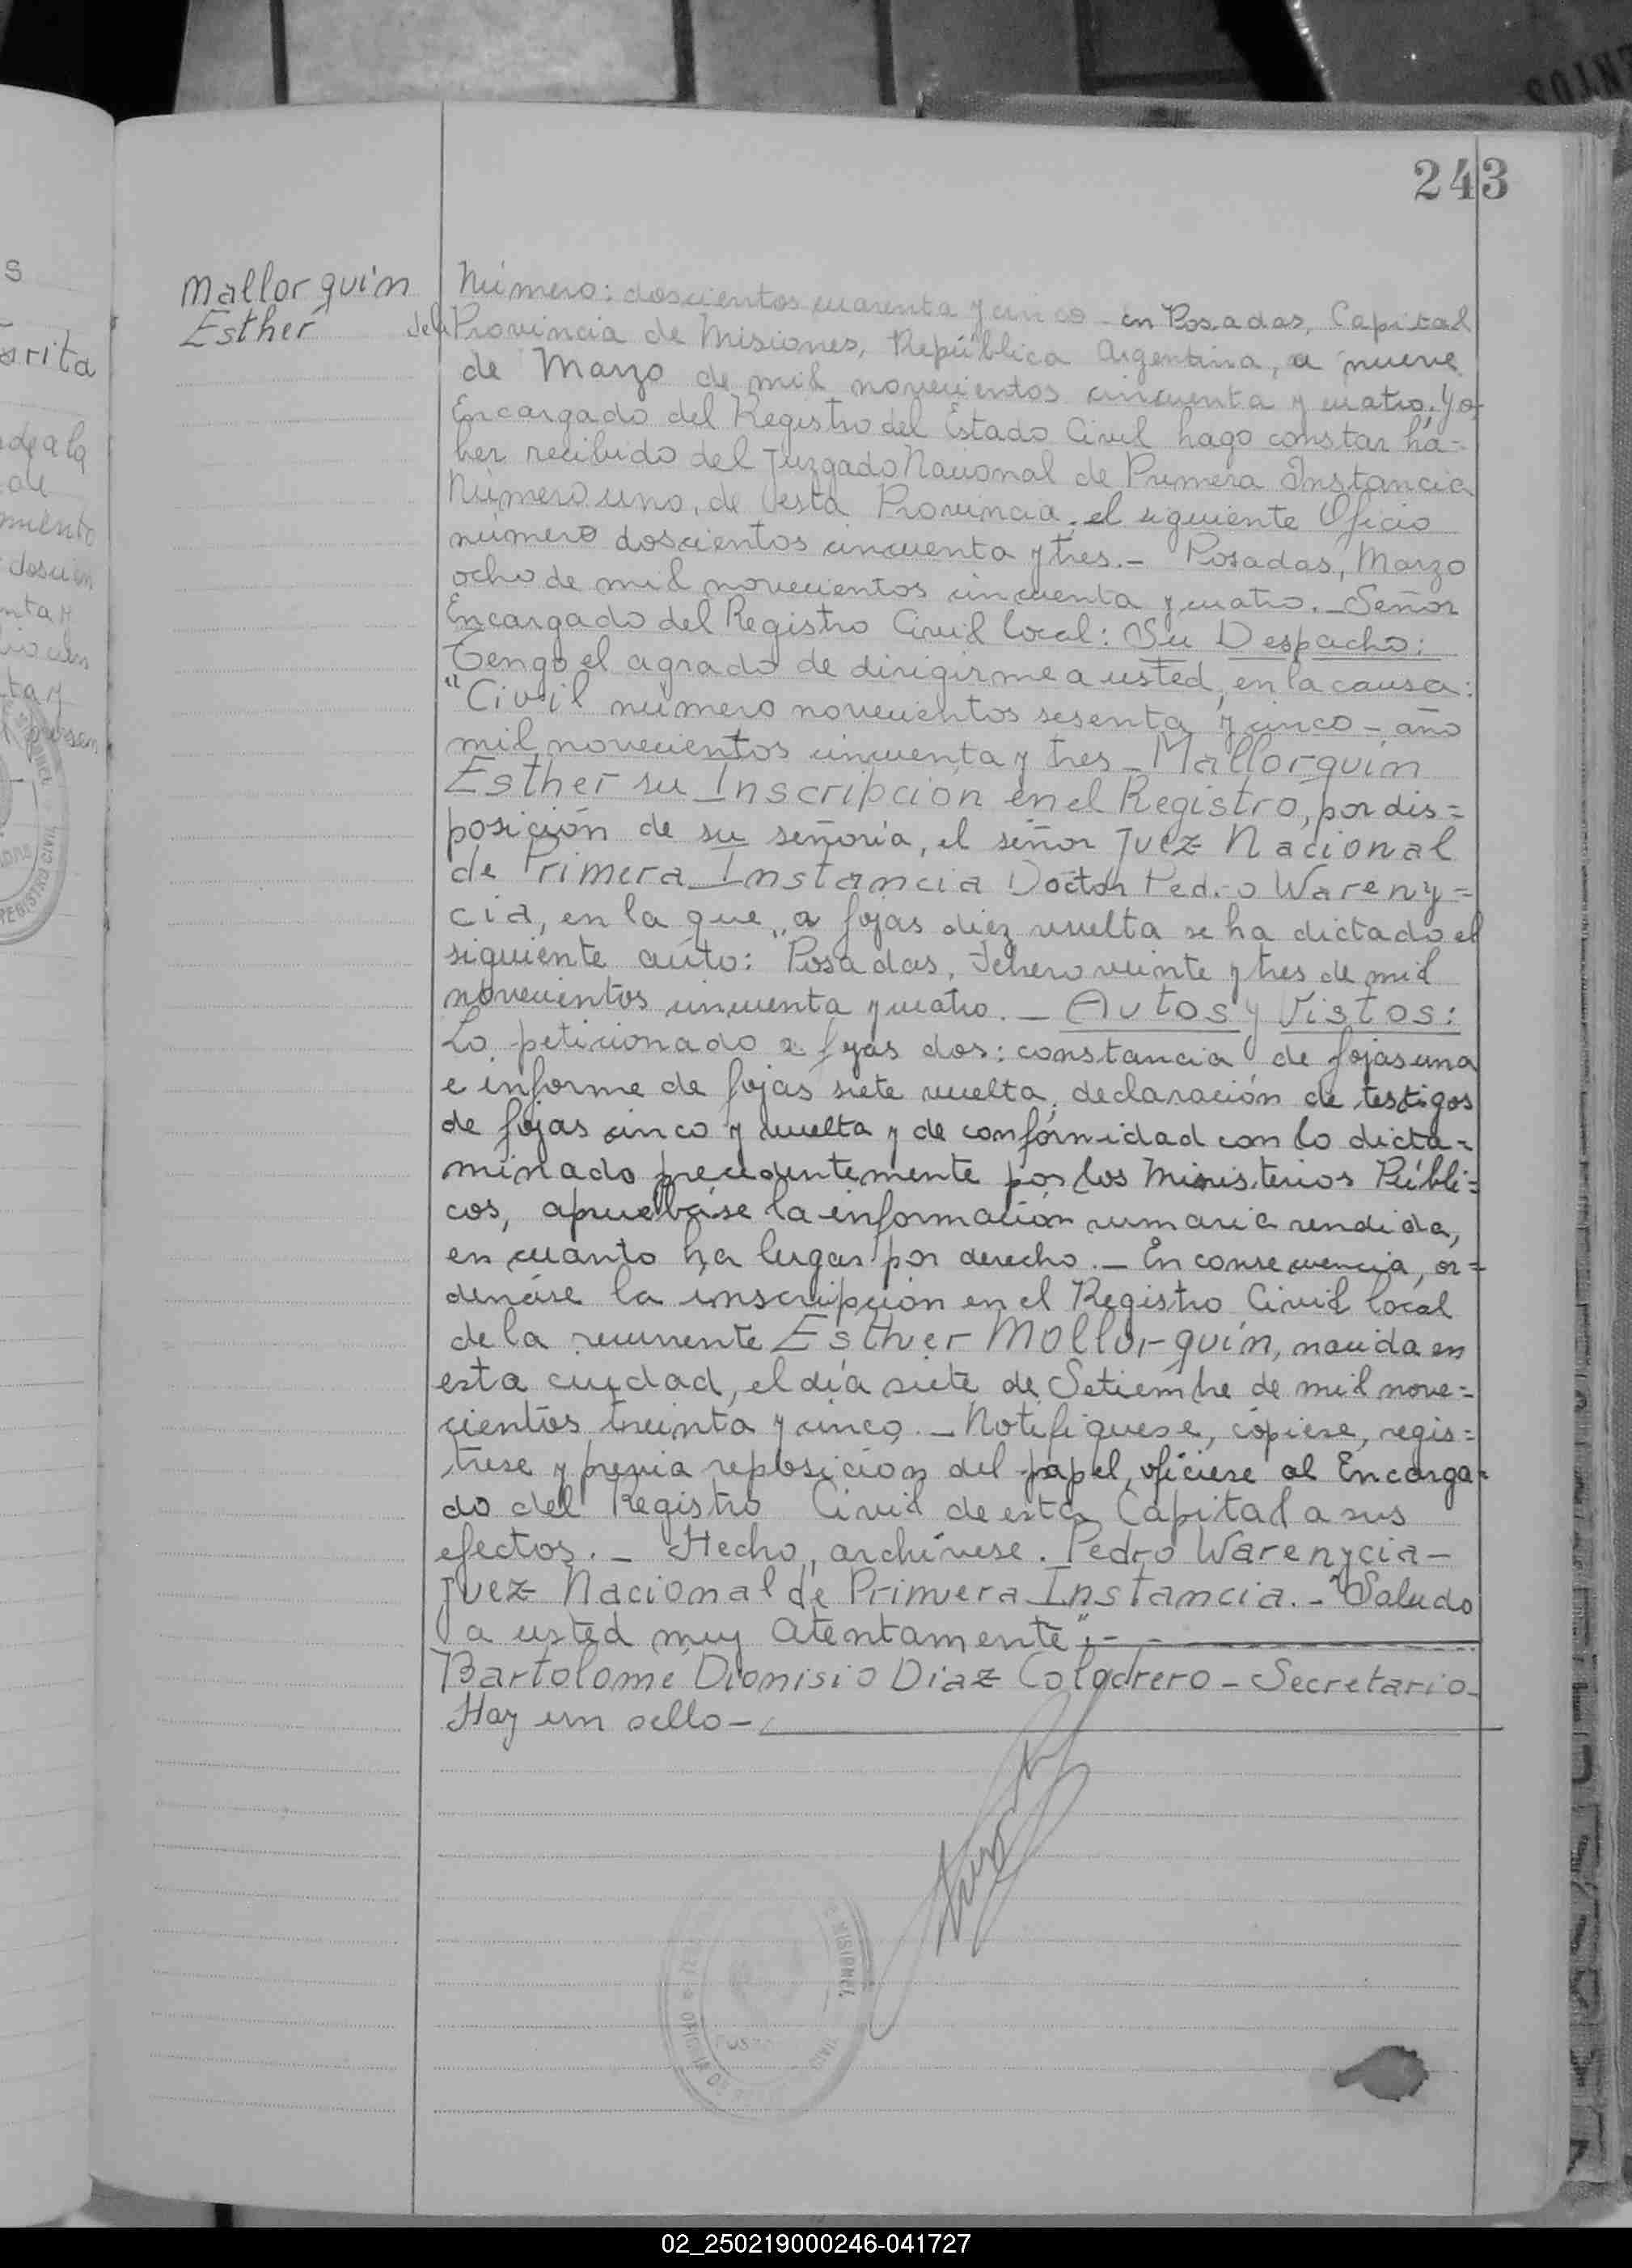 243
Mallorquín
Esther
Número: doscientos cuarenta y cinco - en Posadas, Capital
de la Provincia de Misiones, República Argentina, a nueve
de Marzo de mil novecientos cincuenta y cuatro. Yo,
Encargado del Registro del Estado Civil hago constar ha=
ber recibido del Juzgado Nacional de Primera Instancia
Número uno, de esta Provincia, el siguiente Oficio
número doscientos cincuenta y tres.- Posadas, Marzo
ocho de mil novecientos cincuenta y cuatro._ Señor
Encargado del Registro Civil local: Su Despacho:
Tengo el agrado de dirigirme a usted, en la causa:
"Civil número novecientos sesenta y cinco - año
mil novecientos cincuenta y tres - Mallorquín
Esther su Inscripción en el Registro, por dis=
posición de su señoría, el señor Juez Nacional
de Primera Instancia Doctor Pedro Wareny=
cia, en la que a fojas diez vuelta se ha dictado el
siguiente auto: "Posadas, Febrero veinte y tres de mil
novecientos cincuenta y cuatro. _ Autos y Vistos:
Lo peticionado a fojas dos: constancia de fojas una
e informe de fojas siete vuelta, declaración de testigos
de fojas cinco y vuelta y de conformidad con lo dicta=
minado precedentemente por los Ministerios Públi=
cos, apruebáse la información sumaria rendida,
en cuanto ha lugar por derecho._ En consecuencia, or=
denáse la inscripción en el Registro Civil local
de la recurrente Esther Mollorquín, nacida en
esta ciudad, el día siete de Setiembre de mil nove=
cientos treinta y cinco._ Notifiquese, cópiese, regis=
trese y previa reposición del papel, ofíciese al Encarga=
do del Registro Civil de esta Capital a sus
efectos._ Hecho, archívese. Pedro Warenycia-
Juez Nacional de Primera Instancia.-" Saludo
a usted muy Atentamente".-
Bartolomé Dionisio Diaz Colodrero - Secretario-
Hay un sello-
MISIONES
02_250219000246-041727